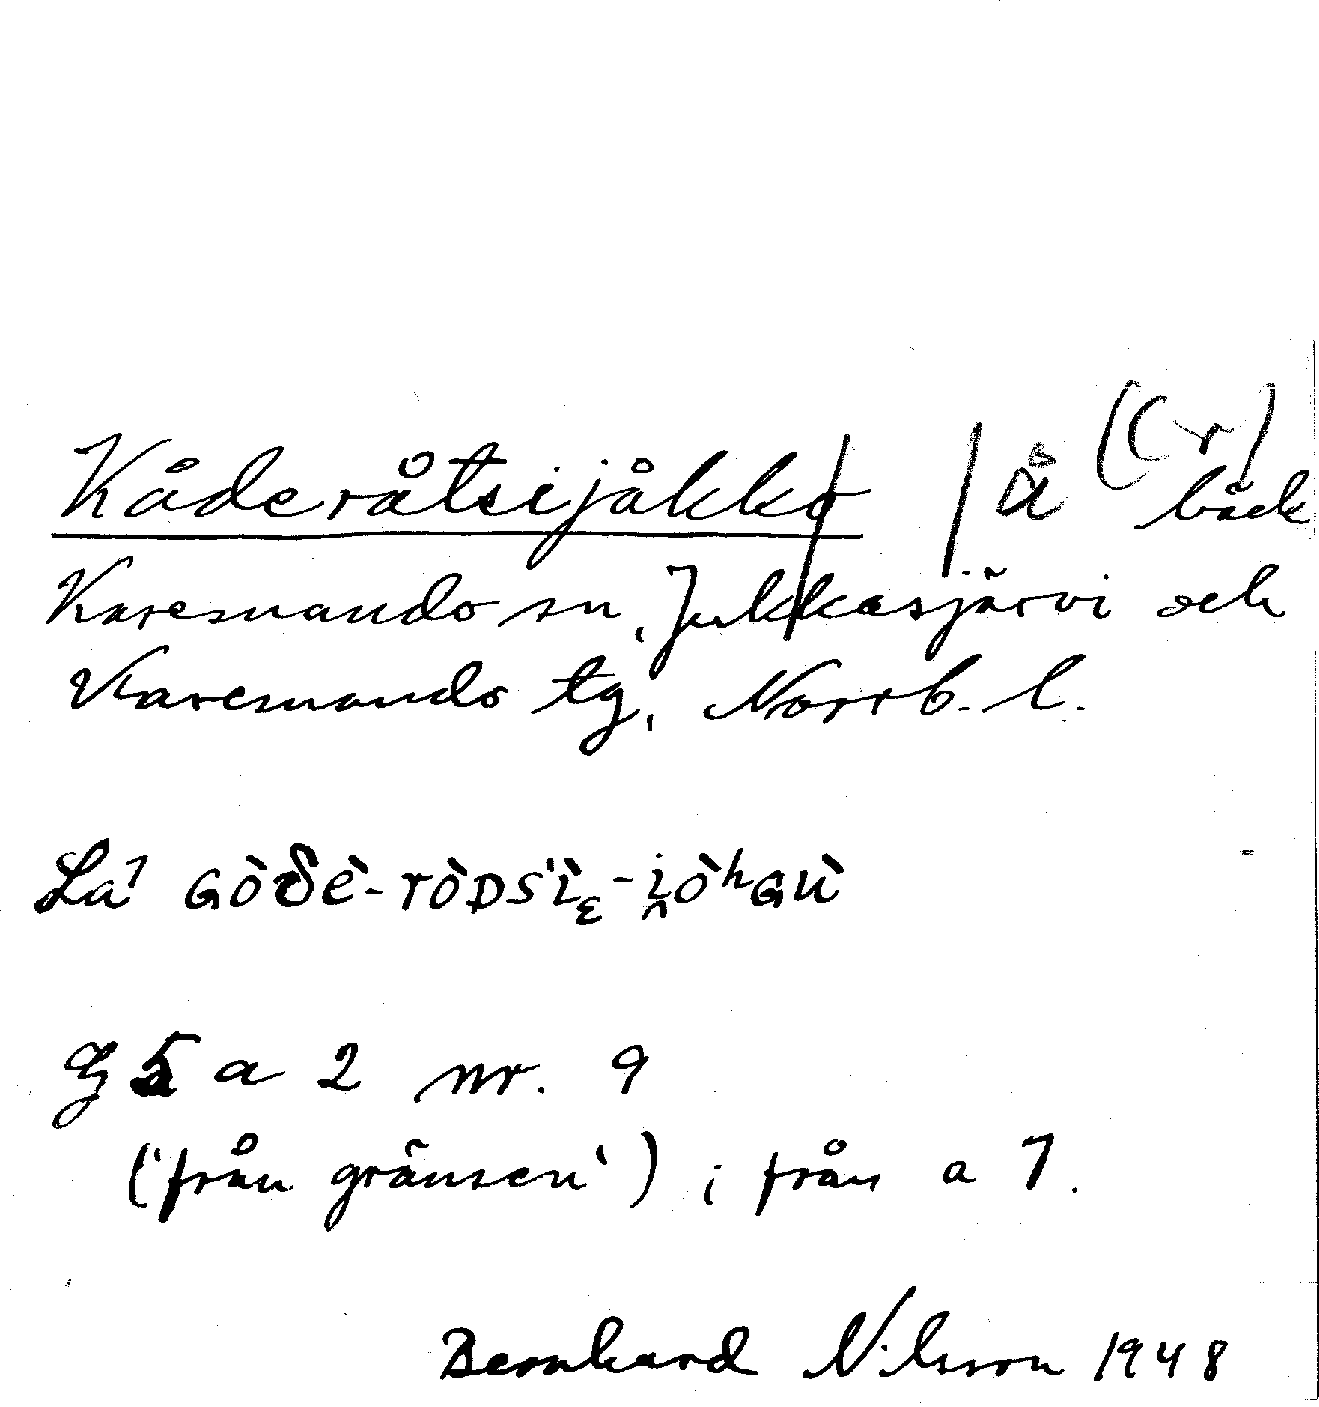 Kåderåtsijåkko | å (Cr) bäck
Karesuando sn, Jukkasjärvi och
Karesuando tg, Norrb. l.
La7 GÒδÈ-RÒDS'Ìε-i̯ÒʰGÙ
G 5 a 2 nr. 9
('från gränsen') ; från a 7.
Bernhard Nilsson 1948